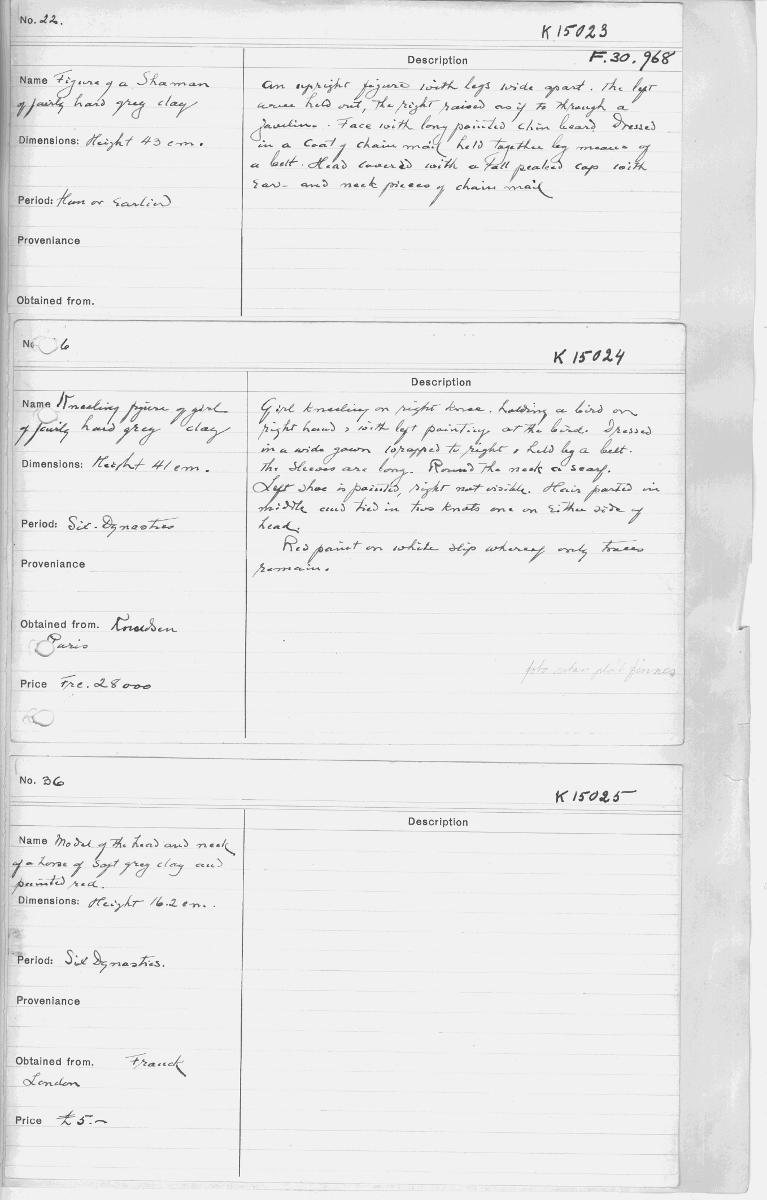 No. 22.
K 15023
Description
F.30.968
Name Figure of a Shaman
of fairly hard grey clay
Dimensions: Height 43 cm.
Period: Han or Earlier
Proveniance
Obtained from.
An upright figure with legs wide apart. The left
arm held out, the right raised as if to through a
javeline. Face with long pointed chin beard. Dressed
in a coat of chain mail held together by means of
a belt. Head covered with a tall peaked cap with
ear- and neck pieces of chain mail
No 6
K 15024
Description
Name Kneeling figure of girl
of fairly hard grey clay
Dimensions: Height 41 cm.
Period: Six-Dynasties
Proveniance
Obtained from. Knudsen
Paris
Price Frc. 28000
Girl kneeling on right knee. holding a bird on
right hand & with left pointing at the bird. Dressed
in a wide gown wrapped to right & held by a belt.
The sleeves are long. Round the neck a scarf.
Left shoe is pointed, right not visible. Hair parted in
middle and tied in two knots one on either side of
head.
Red paint on white slip whereof only traces
remain.
finnes
No. 36
K 15025
Description
Name Model of the head and neck
of a horse of soft grey clay and
painted red.
Dimensions: Height 16.2 cm.
Period: Six Dynasties.
Proveniance
Obtained from. Franck
London
Price £5.-